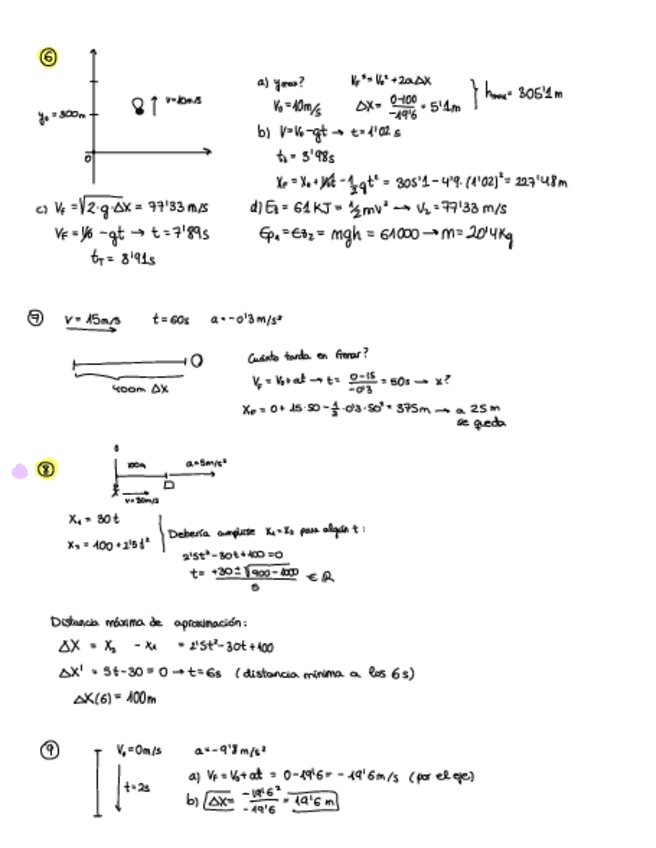 6
y₀ = 300m
v=10m/s
0
a) ymax? VF² = V0² + 2aΔX
V0 = 10m/s ΔX = 0-100/-19'6 = 5'1m } hmax = 305'1m
b) V=V0-gt → t=1'02 s
t2 = 3'98s
XF = X0 + V0t - 1/2gt² = 305'1 - 4'9·(1'02)² = 227'48m
c) VF = √2·g·ΔX = 77'33 m/s
VF = V0 - gt → t=7'89s
tT = 8'91s
d) E2 = 61 KJ = 1/2mv² → V2 = 77'33 m/s
Ep1 = Ec2 = mgh = 61000 → m = 20'4Kg
7 v = 15m/s t = 60s a = -0'3 m/s²
400m ΔX
Cuánto tarda en frenar?
VF = V0+at → t = 0-15/-0'3 = 50s → x?
XF = 0 + 15·50 - 1/2·0'3·50² = 375m → a 25m
se queda
8
100m a=5m/s²
v=30m/s
X1 = 30t
X2 = 100 + 2'5t²
Debería cumplirse X1=X2 para algún t:
2'5t² - 30t + 100 = 0
t = +30 ± √900 - 1000/5 ∈ R
Distancia máxima de aproximación:
ΔX = X2 - X1 = 2'5t² - 30t + 100
ΔX' = 5t - 30 = 0 → t = 6s (distancia mínima a los 6s)
ΔX(6) = 100m
9 V0 = 0m/s a = -9'8 m/s²
t = 2s
a) VF = V0 + at = 0 - 19'6 = -19'6 m/s (por el eje)
b) ΔX = -19'6²/-19'6 = 19'6 m